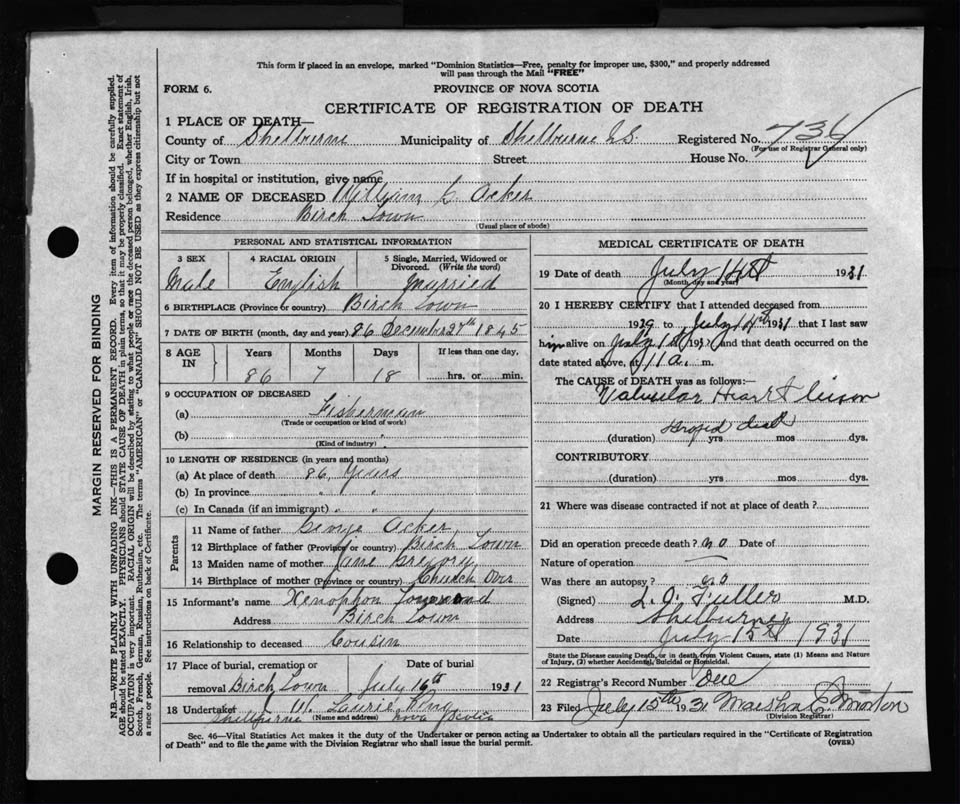 This form if placed in an envelope, marked "Dominion Statistics—Free, penalty for improper use, $300," and properly addressed
will pass through the Mail "FREE"
FORM 6.
PROVINCE OF NOVA SCOTIA
CERTIFICATE OF REGISTRATION OF DEATH
1 PLACE OF DEATH—
County of Shelburne Municipality of Shelburne Registered No. 736
(For use of Registrar General only)
City or Town Street House No.
If in hospital or institution, give name
2 NAME OF DECEASED William C. Acker
Residence Birch Town
(Usual place of abode)
PERSONAL AND STATISTICAL INFORMATION
3 SEX 4 RACIAL ORIGIN 5 Single, Married, Widowed or
Divorced. (Write the word)
Male English Married
6 BIRTHPLACE (Province or country) Birch Town
7 DATE OF BIRTH (month, day and year) 86 December 27th 1845
8 AGE IN Years Months Days If less than one day,
86 7 18 hrs. or min.
9 OCCUPATION OF DECEASED
(a) Fisherman
(Trade or occupation or kind of work)
(b)
(Kind of industry)
10 LENGTH OF RESIDENCE (in years and months)
(a) At place of death 86 Years
(b) In province " "
(c) In Canada (if an immigrant) " "
Parents
11 Name of father George Acker
12 Birthplace of father (Province or country) Birch Town
13 Maiden name of mother Jane Gregory
14 Birthplace of mother (Province or country) Church Over
15 Informant's name Xenophon
Address Birch Town
16 Relationship to deceased Cousin
17 Place of burial, cremation or Date of burial
removal Birch Town July 16th 1931
18 Undertaker W. Laurie King
Shelburne (Name and address) Nova Scotia
MEDICAL CERTIFICATE OF DEATH
19 Date of death July 14th 1931
(Month, day and year)
20 I HEREBY CERTIFY that I attended deceased from
1929 to July 14th 1931 that I last saw
him alive on July 193 and that death occurred on the
date stated above, at 11 a. m.
The CAUSE of DEATH was as follows:—
Valvular Heart lesion
Dropped dead
(duration) yrs mos dys.
CONTRIBUTORY
(duration) yrs mos dys.
21 Where was disease contracted if not at place of death?
Did an operation precede death? no Date of
Nature of operation —
Was there an autopsy? no
(Signed) L. O. Fuller M.D.
Address Shelburne
Date July 15th 1931
State the Disease causing Death, or in death from Violent Causes, state (1) Means and Nature
of Injury, (2) whether Accidental, Suicidal or Homicidal.
22 Registrar's Record Number One
23 Filed July 15th 1931 Morton
(Division Registrar)
Sec. 46—Vital Statistics Act makes it the duty of the Undertaker or person acting as Undertaker to obtain all the particulars required in the "Certificate of Registration
of Death" and to file the same with the Division Registrar who shall issue the burial permit.
(OVER)
MARGIN RESERVED FOR BINDING
N.B.—WRITE PLAINLY WITH UNFADING INK—THIS IS A PERMANENT RECORD. Every item of information should be carefully supplied.
AGE should be stated EXACTLY. PHYSICIANS should STATE CAUSE OF DEATH in plain terms, so that it may be properly classified. Exact statement of
OCCUPATION is very important. RACIAL ORIGIN will be described by stating to what people or race the deceased person belonged, whether English, Irish,
Scotch, French, German, Russian, Ruthenian, etc. The terms "AMERICAN" or "CANADIAN" SHOULD NOT BE USED as they express citizenship but not
a race or people. See instructions on back of Certificate.